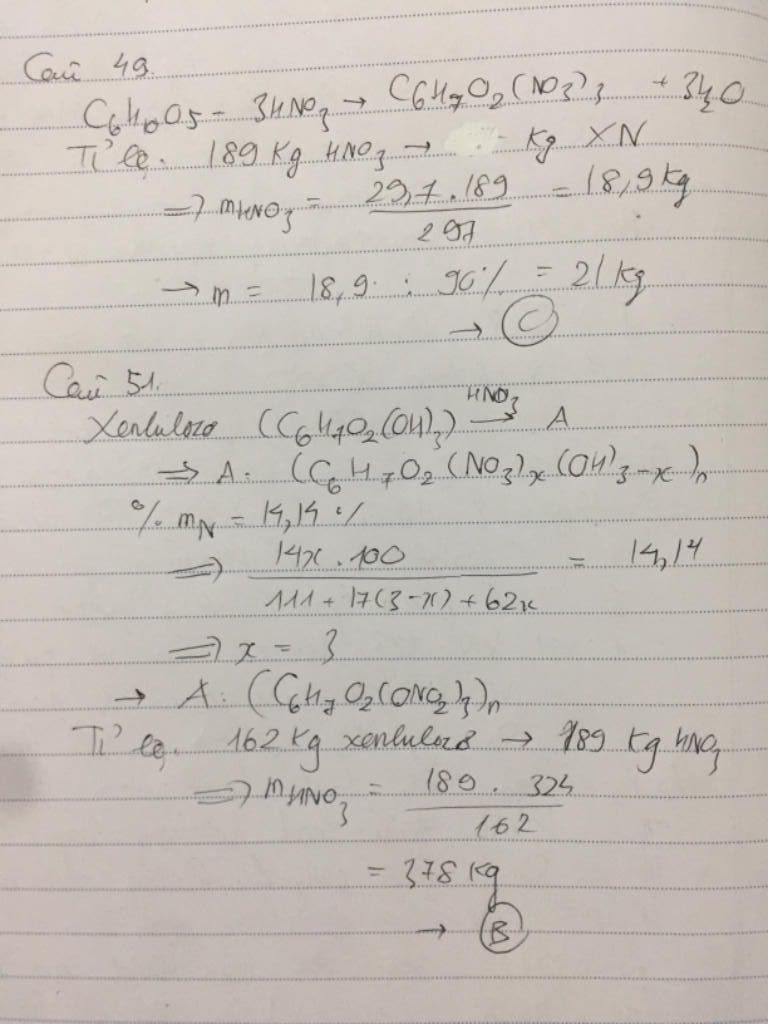 Câu 49.
C6H10O5 - 3HNO3 → C6H7O2(NO3)3 + 3H2O
Tỉ lệ. 189 Kg HNO3 → Kg XN
=> mHNO3 = 29,7 . 189 / 297 = 18,9 kg
→ m = 18,9 : 90% = 21 kg
→ C
Câu 51.
Xenlulozo (C6H7O2(OH)3) HNO3→ A
=> A: (C6H7O2(NO3)x(OH)3-x)n
% mN = 14,14 %
=> 14x . 100 / 111 + 17(3-x) + 62x = 14,14
=> x = 3
→ A: (C6H7O2(ONO2)3)n
Tỉ lệ. 162 Kg xenlulozo → 189 Kg HNO3
=> mHNO3 = 189 . 324 / 162
= 378 kg
→ B